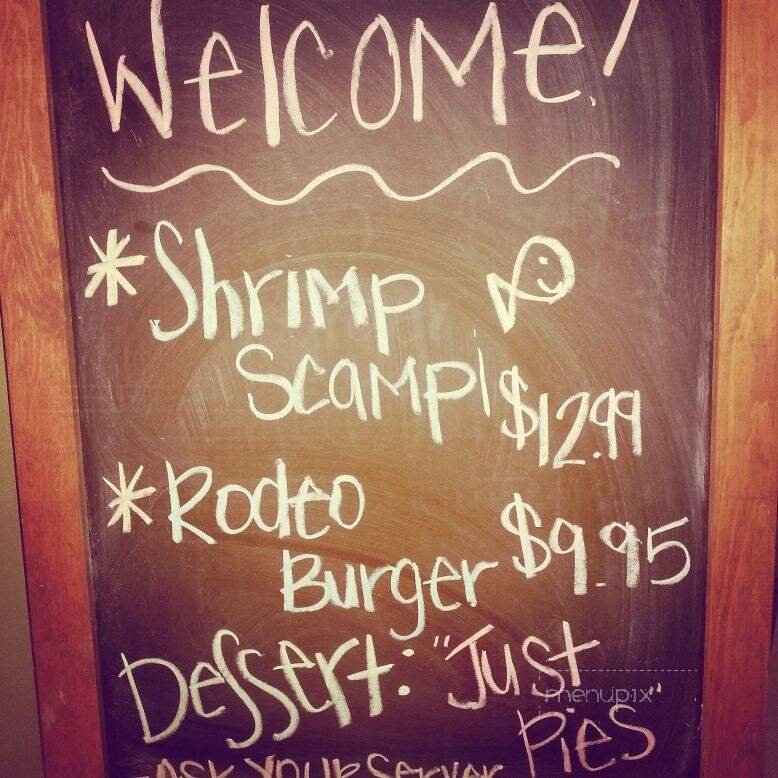 Welcome!
*Shrimp
Scampi $12.99
*Rodeo
Burger $9.95
Dessert: "Just
Pies"
menupix
-ask your server